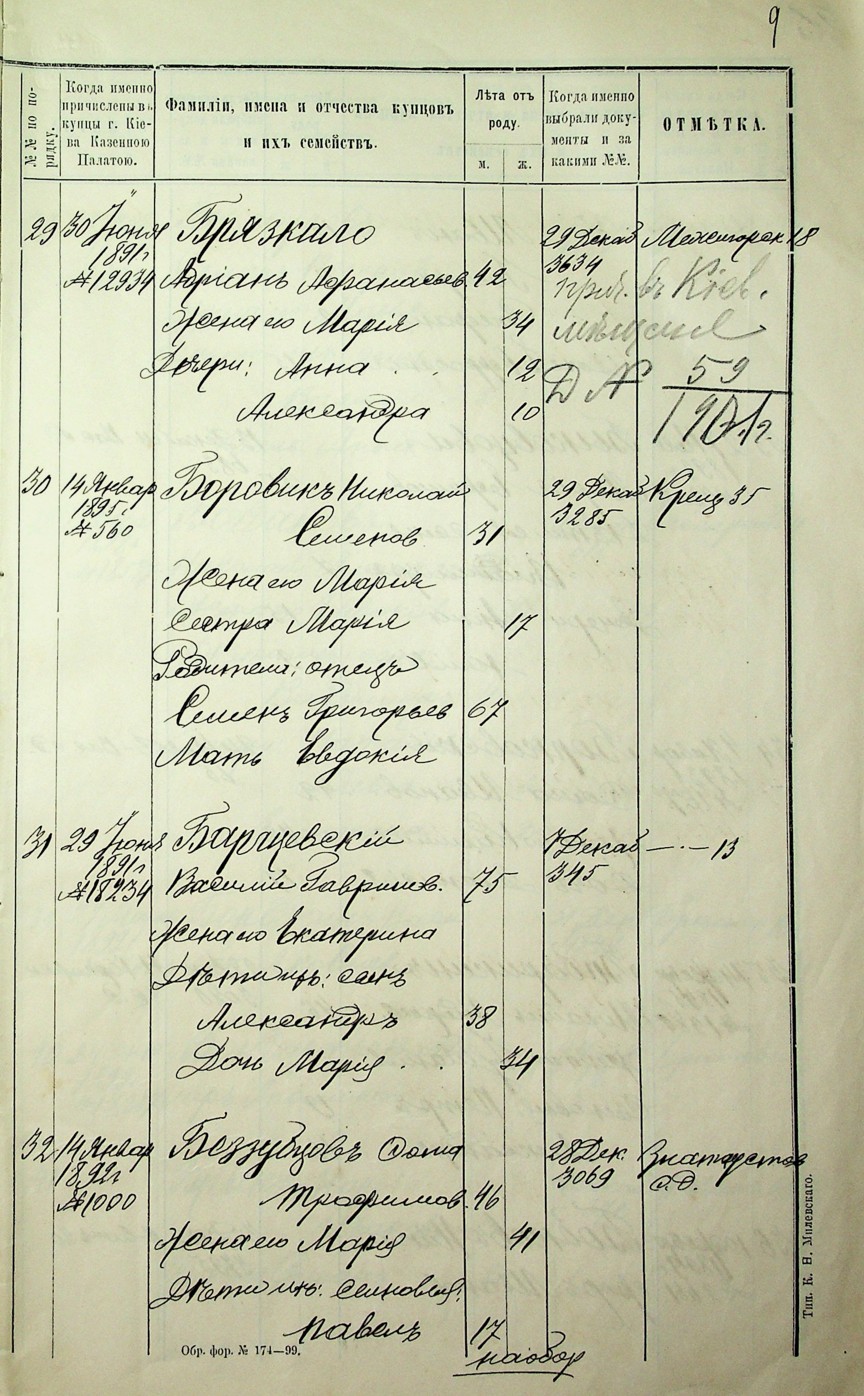 9
№№ по по-
рядку.
Когда именно
причислены въ
купцы г. Кіе-
ва Казенною
Палатою.
Фамиліи, имена и отчества купцовъ
и ихъ семействъ.
Лѣта отъ
роду.
м. ж.
Когда именно
выбрали доку-
менты и за
какими №№.
ОТМѢТКА.
29 30 Іюня Брязкало 29 Декаб Межигорск 18
1891г 3634
№12934 Адріанъ Афанасьев 42 прич. въ Кіев.
Жена его Марія 34 мѣщане
Дочери: Анна . . 12 Д № 59
Александра 10 1901г.
30 14 Январ Боровикъ Николай 29 Декаб Крещ 35
1895г. 3285
№560 Семенов 31
Жена его Марія
Сестра Марія 17
Родители: отецъ
Семенъ Григорьев 67
Мать Евдокія
31 29 Іюня Барщевскій 7 Декаб —·— 13
1891г 345
№18234 Василій Гаврилов. 75
Жена его Екатерина
Дѣти ихъ: сынъ
Александръ 38
Дочь Марія . . 34
32 14 Январ Беззубцовъ Фома 28 Дек. Златоустов
1892г 3069 с.д.
№1000 Трофимов. 46
Жена его Марія 41
Дѣти ихъ: сыновья:
Павелъ 17
наобор
Обр. фор. № 174—99.
Тип. К. Н. Милевскаго.